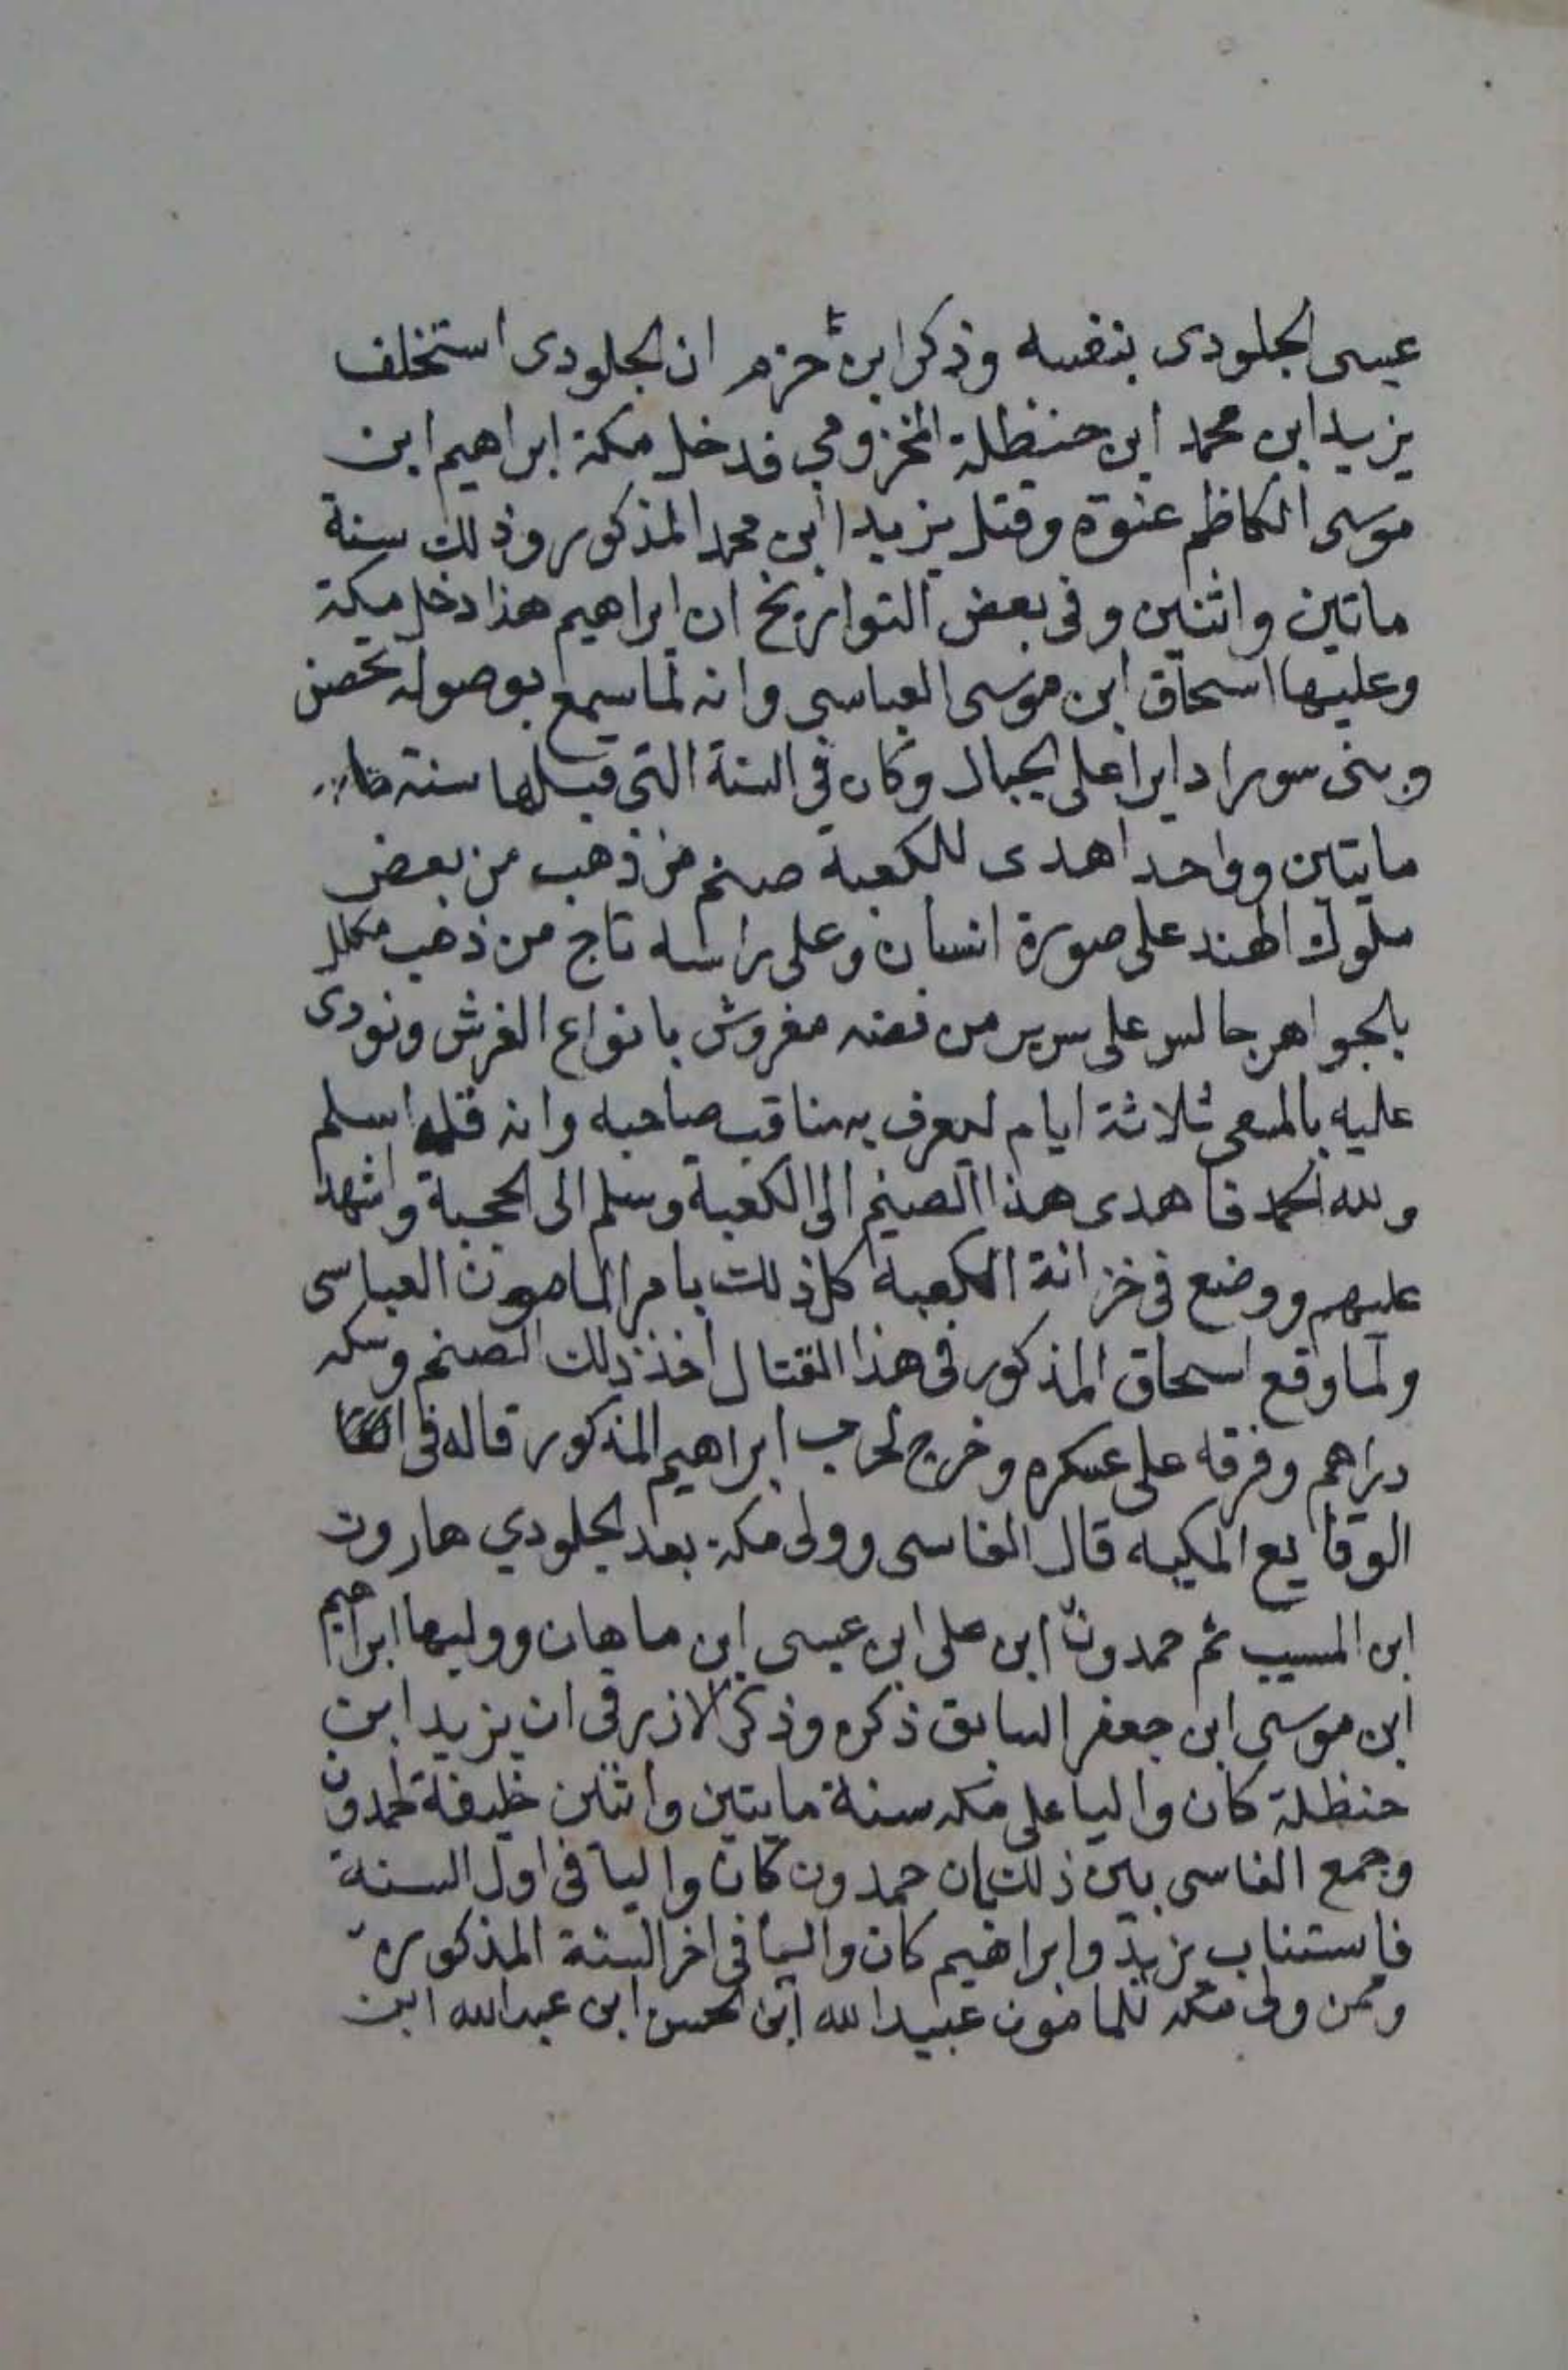 عيسى الجلودى بنفسه وذكر ابن حزم ان الجلودى استخلف
يزيد ابن محمد ابن حنظلة المخزومي فدخل مكة ابراهيم ابن
موسى الكاظم عنوة وقتل يزيد ابن محمد المذكور وذلك سنة
ماتين واثنين وفى بعض التواريخ ان ابراهيم هذا دخل مكة
وعليها اسحاق ابن موسى العباسى وانه لما سمع بوصوله تحصن
وبنى سورا دايرا على الجبال وكان في السنة التى قبلها سنة
مايتين وواحد اهدى للكعبة صنم من ذهب من بعض
ملوك الهند على صورة انسان وعلى راسه تاج من ذهب مكلل
بالجواهر جالس على سرير من فضه مفروش بانواع الفرش ونودى
عليه بالمسعى ثلاثة ايام ليعرف به مناقب صاحبه وانه قد اسلم
ولله الحمد فاهدى هذا الصنم الى الكعبة وسلم الى الحجبة واشهد
عليهم ووضع فى خزانة الكعبة كل ذلك بامر المامون العباسى
ولما وقع اسحاق المذكور فى هذا القتال اخذ ذلك الصنم وسكه
دراهم وفرقه على عسكره وخرج لحرب ابراهيم المذكور قاله فى
الوقايع المكيه قال الفاسى وولى مكة بعد الجلودي هارون
ابن المسيب ثم حمدون ابن على ابن عيسى ابن ماهان ووليها ابراهيم
ابن موسى ابن جعفر السابق ذكره وذكر الازرقى ان يزيد ابن
حنظلة كان واليا على مكه سنة مايتين واثنين خليفة لحمدون
وجمع الفاسى بين ذلك بان حمدون كان واليا فى اول السنة
فاستناب يزيد وابراهيم كان واليا فى اخر السنة المذكوره
وممن ولى مكه للمامون عبيدالله ابن الحسن ابن عبدالله ابن